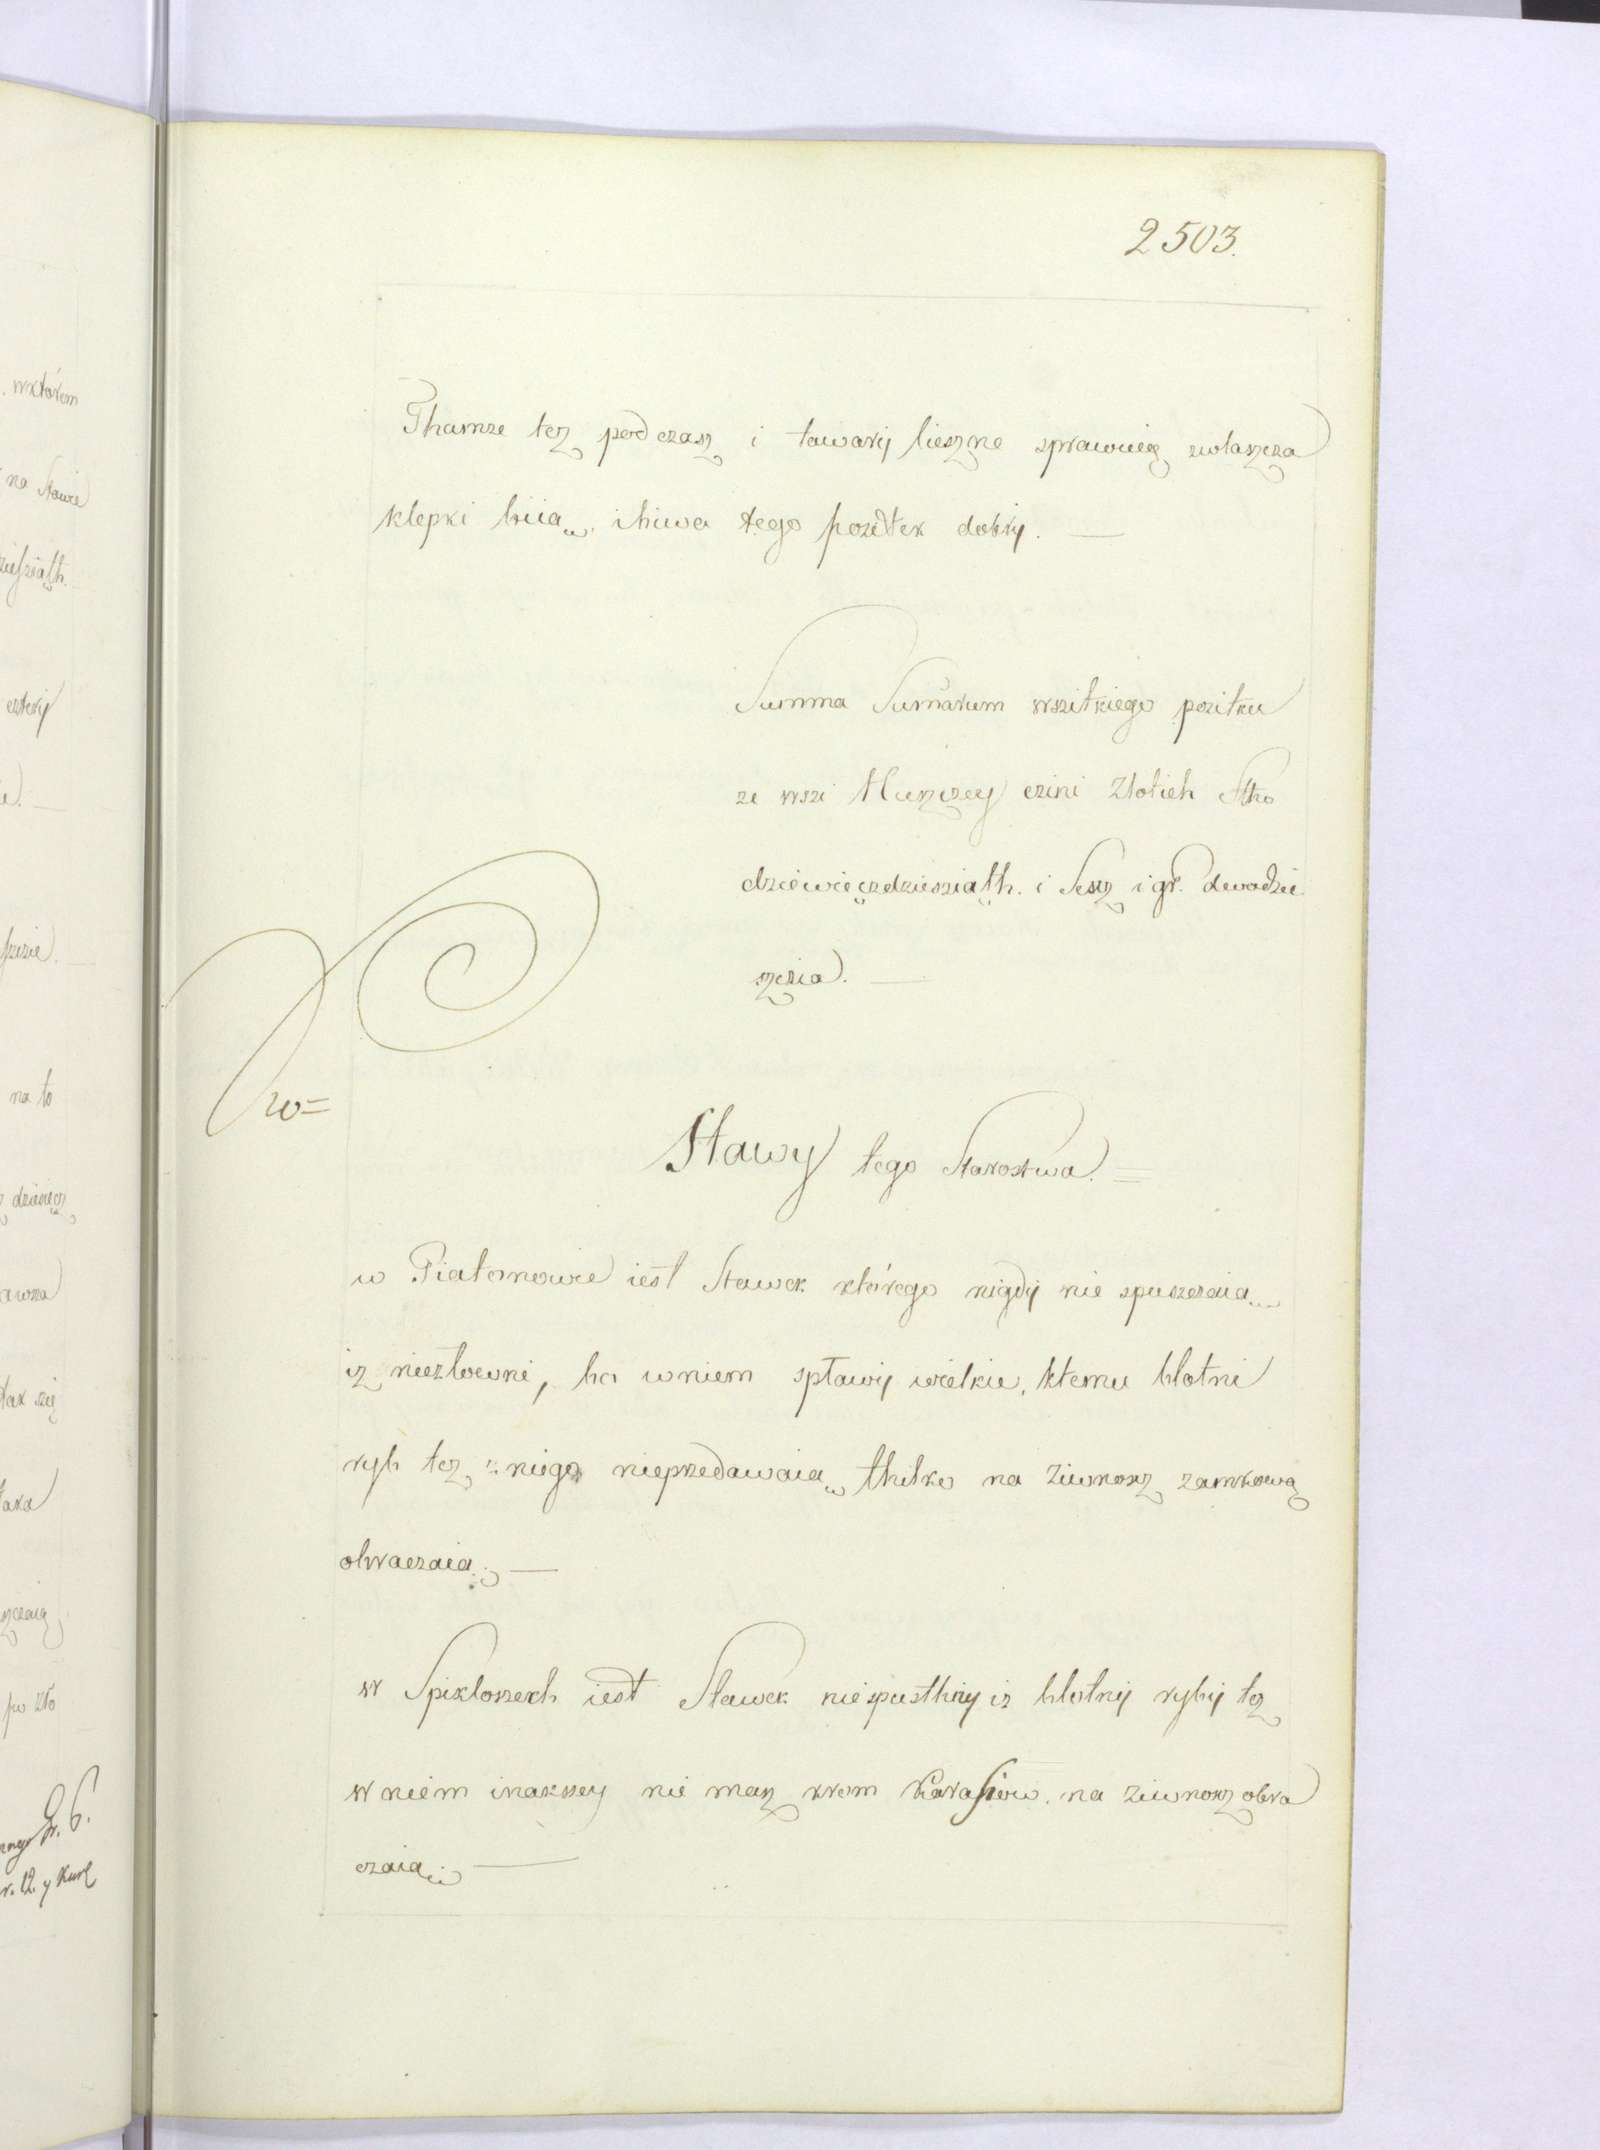 2503.
Thamze tez pod czasz i towarij lieszne sprawuię zwłaszcza
klepki biia, i biwa tego pozitek dobrij. —
Summa Sumarum wszitkiego pozitku
ze wszi czini Złotich Stho
dziewięczdziesziąth. i Sescz i gr. dwadzie
szczia. —
w=
Stawy tego Starostwa. =
w Piatonowie iest Stawek którego nigdij nie spuszczaią
iz niezłowni, bo w niem spławij wielkie, ktemu błotni
ryb tez z niego nieprzedawaią thilko na ziwnosz zamkową
obraczaią. —
w Spiklosech iest Stawek niespusthny iz błotnij rybij tez
w niem inakszey nie masz krom Karasiow. na ziwnosz obra
czaią —
wktórem
na Stawie
czterij
na to
dziesięcz
tak się
po zło
r. 12. y Kurl